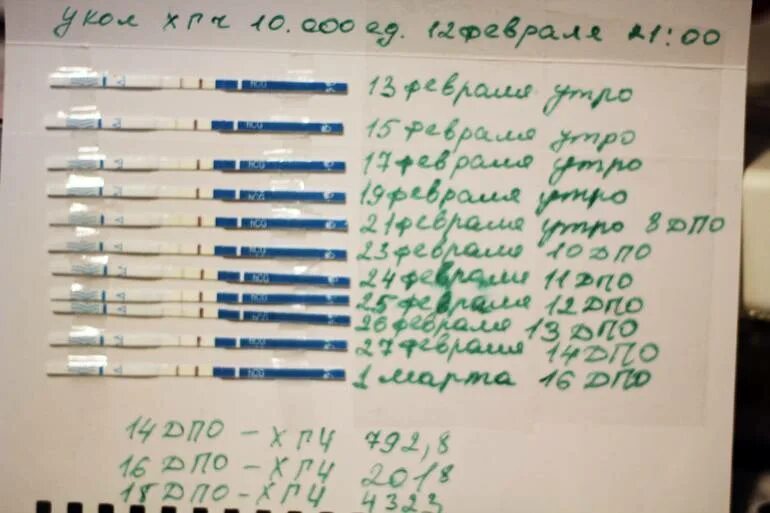 укол ХГЧ 10.000 ед. 12 февраля 21:00
13 февраля утро
15 февраля утро
17 февраля утро
19 февраля утро
21 февраля утро 8 ДПО
23 февраля 10 ДПО
24 февраля 11 ДПО
25 февраля 12 ДПО
26 февраля 13 ДПО
27 февраля 14 ДПО
1 марта 16 ДПО
HCG
HCG
HCG
HCG
HCG
HCG
HCG
HCG
HCG
HCG
HCG
14 ДПО – ХГЧ 792,8
16 ДПО – ХГЧ 2018
18 ДПО – ХГЧ 4323